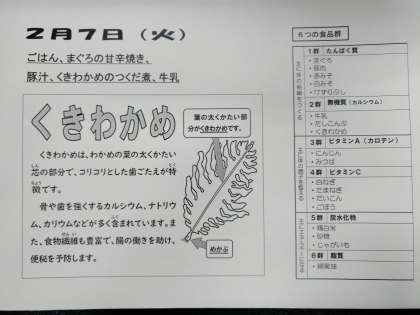 2月7日（火）
ごはん、まぐろの甘辛焼き、
豚汁、くきわかめのつくだ煮、牛乳
くきわかめ
葉の太くかたい部
分がくきわかめです。
くきわかめは、わかめの葉の太くかたい
芯の部分で、コリコリとした歯ごたえが特
徴です。
骨や歯を強くするカルシウム、ナトリウ
ム、カリウムなどが多く含まれています。ま
た、食物繊維も豊富で、腸の働きを助け、
便秘を予防します。
めかぶ
6つの食品群
1群 たんぱく質
・まぐろ
・豚肉
・赤みそ
・白みそ
・けずりぶし
2群 無機質（カルシウム）
・牛乳
・だしこんぶ
・くきわかめ
3群 ビタミンA（カロテン）
・にんじん
・みつば
4群 ビタミンC
・白ねぎ
・たまねぎ
・だいこん
・ごぼう
5群 炭水化物
・精白米
・砂糖
・じゃがいも
6群 脂質
・綿実油